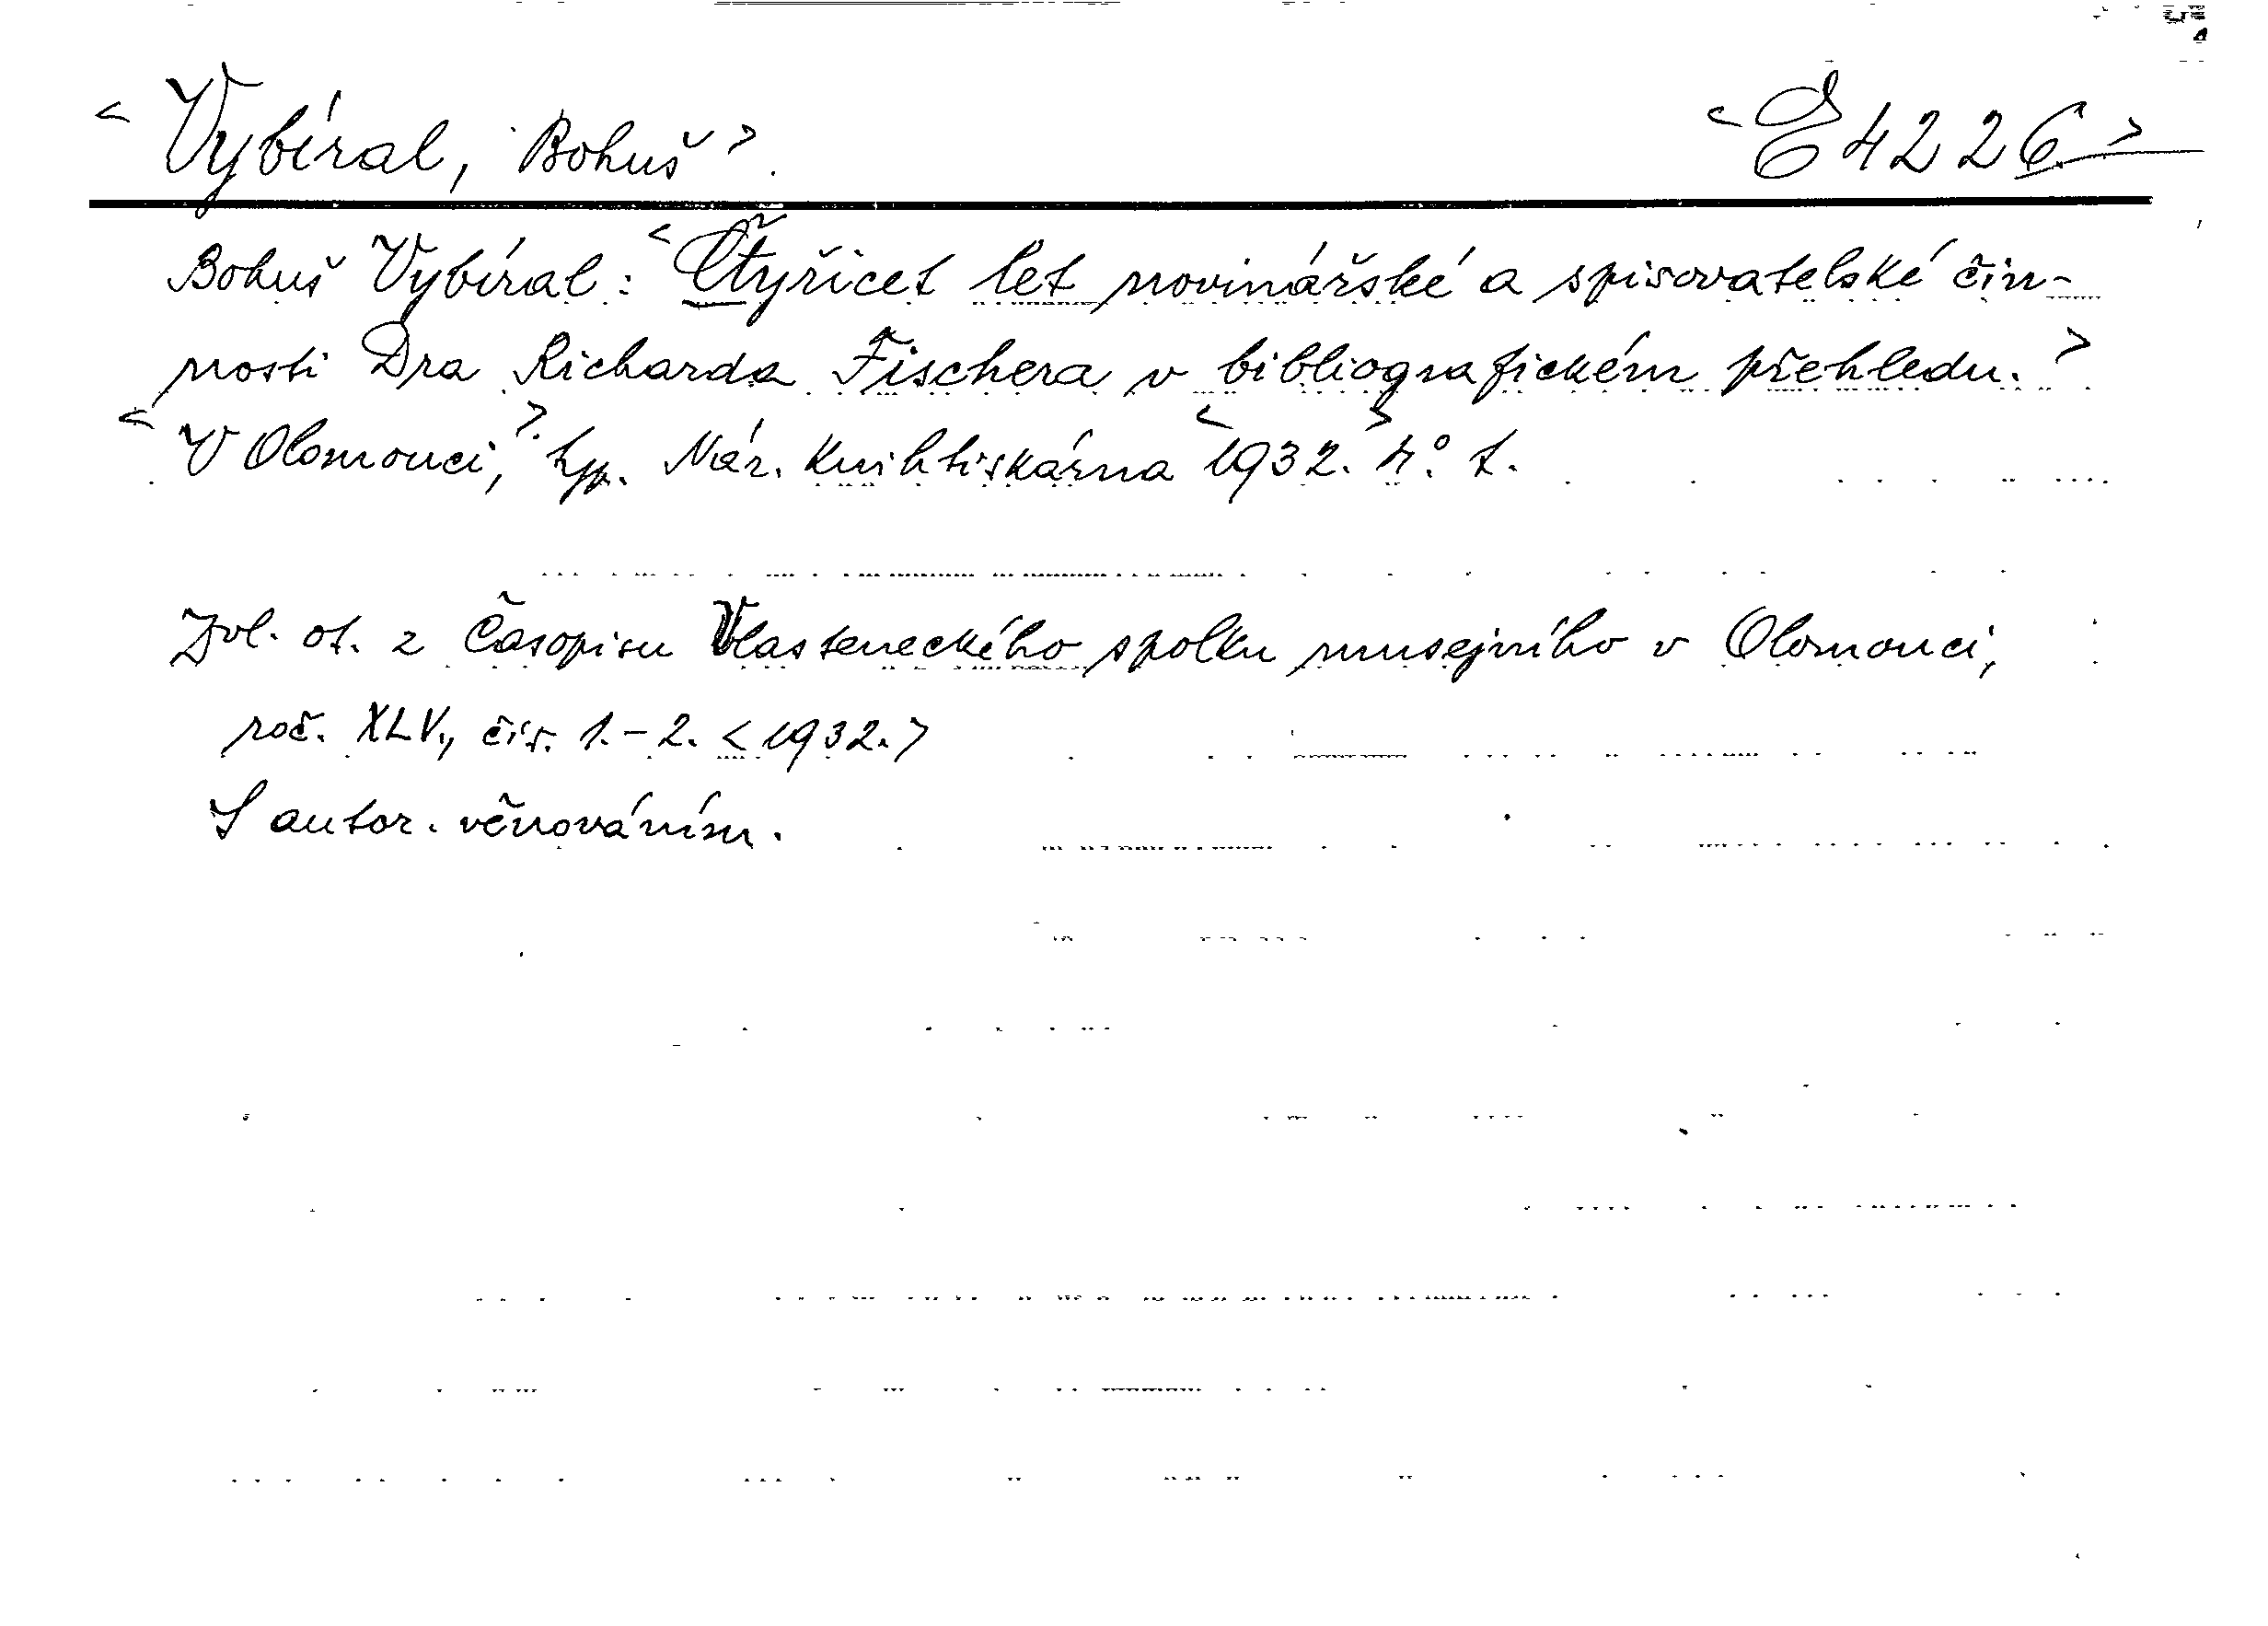 <Vybíral, Bohuš>. <E 4226>
Bohuš Vybíral: <Čtyřicet let novinářské a spisovatelské čin-
nosti Dra Richarda Fischera v bibliografickém přehledu.>
<V Olomouci,>. typ. Nár. knihtiskárna <1932.> 4°. t.
Zvl. ot. z Časopisu Vlasteneckého spolku musejního v Olomouci,
roč. XLV., čís. 1.-2. <1932.>
S autor. věnováním.